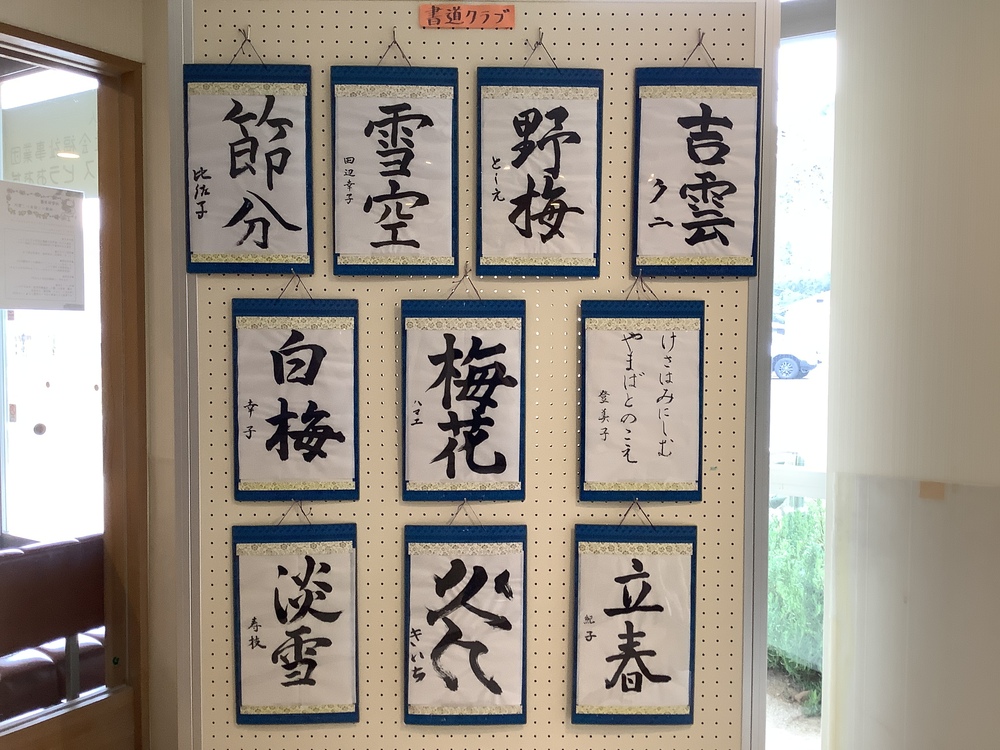 書道クラブ
吉雲
クニ
野梅
としえ
雪空
田辺幸子
節分
比佐子
けさはみにしむ
やまばとのこえ
登美子
梅花
ハマエ
白梅
幸子
立春
紀子
きいち
淡雪
寿枝